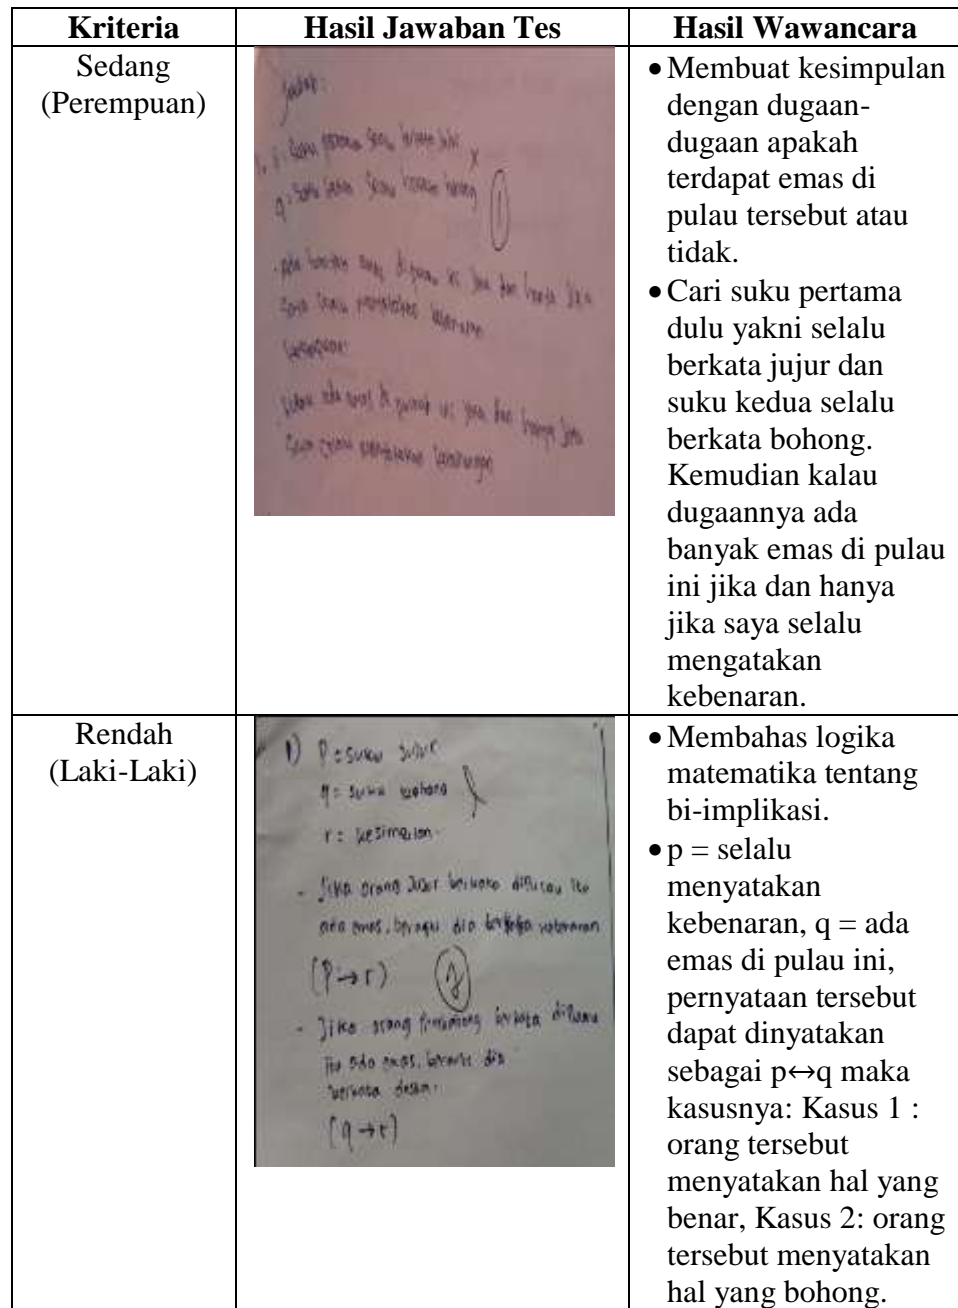 Kriteria
Hasil Jawaban Tes
Hasil Wawancara
Sedang
(Perempuan)
Jawab:
q: suku kedua selalu
ada emas di pulau ini jika dan hanya jika
saya selalu
Kesimpulan:
tidak ada emas di pulau ini jika dan hanya jika
saya selalu
• Membuat kesimpulan
dengan dugaan-
dugaan apakah
terdapat emas di
pulau tersebut atau
tidak.
• Cari suku pertama
dulu yakni selalu
berkata jujur dan
suku kedua selalu
berkata bohong.
Kemudian kalau
dugaannya ada
banyak emas di pulau
ini jika dan hanya
jika saya selalu
mengatakan
kebenaran.
Rendah
(Laki-Laki)
1) P = suku jujur
q = suku bohong
r =
- Jika orang jujur berkata dipulau itu
ada emas, dia
(P→r)
- Jika orang berkata dipulau
itu ada emas, dia
berkata
(q→r)
• Membahas logika
matematika tentang
bi-implikasi.
• p = selalu
menyatakan
kebenaran, q = ada
emas di pulau ini,
pernyataan tersebut
dapat dinyatakan
sebagai p↔q maka
kasusnya: Kasus 1 :
orang tersebut
menyatakan hal yang
benar, Kasus 2: orang
tersebut menyatakan
hal yang bohong.